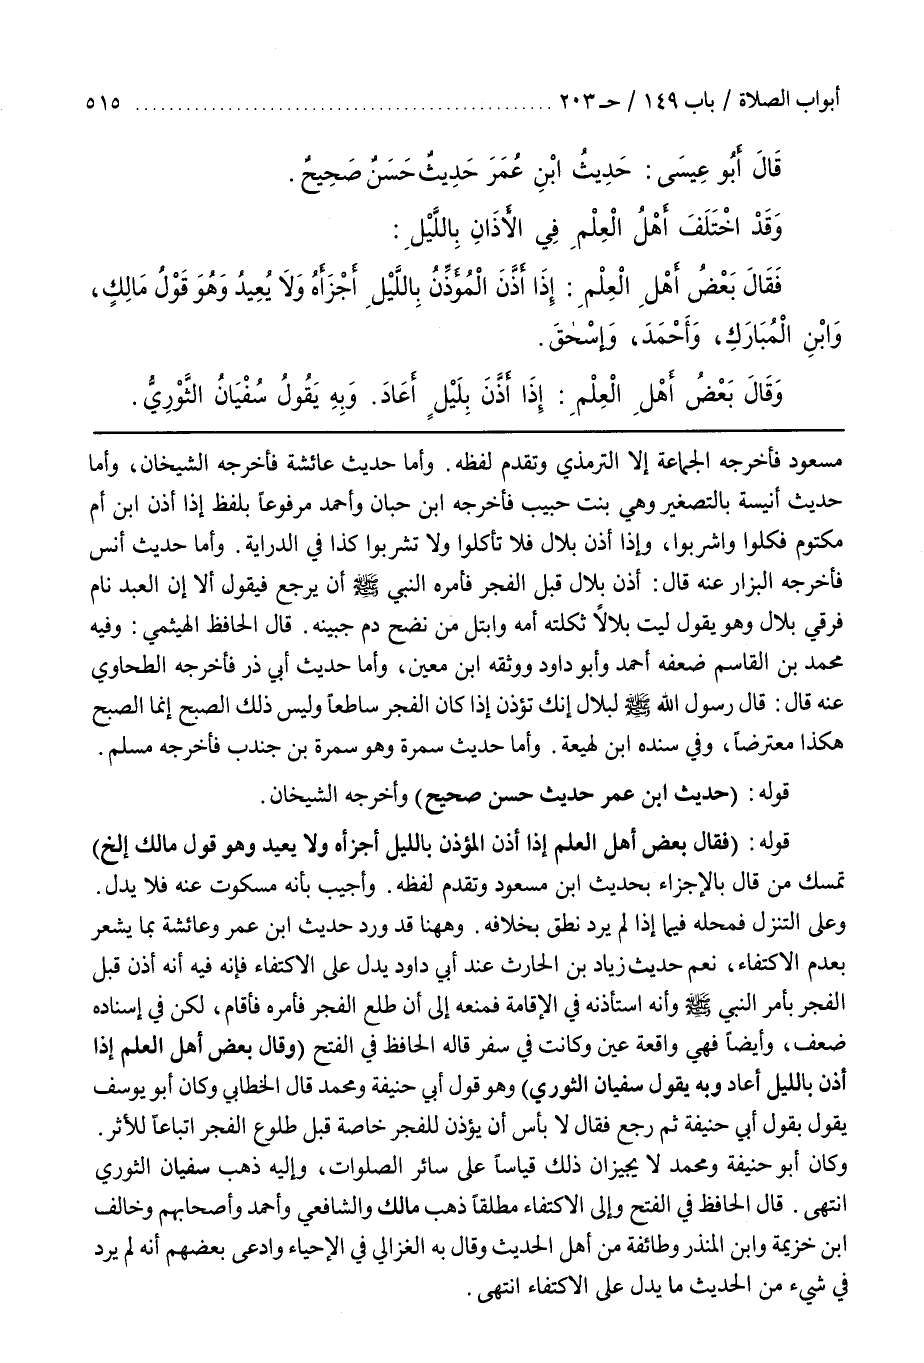 أبواب الصلاة / باب ١٤٩ / حـ ٢٠٣ ................................................ ٥١٥
قَالَ أَبُو عِيسَى: حَدِيثُ ابْنِ عُمَرَ حَدِيثٌ حَسَنٌ صَحِيحٌ.
وَقَدْ اخْتَلَفَ أَهْلُ الْعِلْمِ فِي الأَذَانِ بِاللَّيْلِ:
فَقَالَ بَعْضُ أَهْلِ الْعِلْمِ: إِذَا أَذَّنَ الْمُؤَذِّنُ بِاللَّيْلِ أَجْزَأَهُ وَلَا يُعِيدُ وَهُوَ قَوْلُ مَالِكٍ،
وَابْنِ الْمُبَارَكِ، وَأَحْمَدَ، وَإِسْحٰقَ.
وَقَالَ بَعْضُ أَهْلِ الْعِلْمِ: إِذَا أَذَّنَ بِلَيْلٍ أَعَادَ. وَبِهِ يَقُولُ سُفْيَانُ الثَّوْرِيُّ.
مسعود فأخرجه الجماعة إلا الترمذي وتقدم لفظه. وأما حديث عائشة فأخرجه الشيخان، وأما
حديث أنيسة بالتصغير وهي بنت حبيب فأخرجه ابن حبان وأحمد مرفوعاً بلفظ إذا أذن ابن أم
مكتوم فكلوا واشربوا، وإذا أذن بلال فلا تأكلوا ولا تشربوا كذا في الدراية. وأما حديث أنس
فأخرجه البزار عنه قال: أذن بلال قبل الفجر فأمره النبي ﷺ أن يرجع فيقول ألا إن العبد نام
فرقي بلال وهو يقول ليت بلالاً ثكلته أمه وابتل من نضح دم جبينه. قال الحافظ الهيثمي: وفيه
محمد بن القاسم ضعفه أحمد وأبو داود ووثقه ابن معين، وأما حديث أبي ذر فأخرجه الطحاوي
عنه قال: قال رسول الله ﷺ لبلال إنك تؤذن إذا كان الفجر ساطعاً وليس ذلك الصبح إنما الصبح
هكذا معترضاً، وفي سنده ابن لهيعة. وأما حديث سمرة وهو سمرة بن جندب فأخرجه مسلم.
قوله: (حديث ابن عمر حديث حسن صحيح) وأخرجه الشيخان.
قوله: (فقال بعض أهل العلم إذا أذن المؤذن بالليل أجزأه ولا يعيد وهو قول مالك إلخ)
تمسك من قال بالإجزاء بحديث ابن مسعود وتقدم لفظه. وأجيب بأنه مسكوت عنه فلا يدل.
وعلى التنزل فمحله فيما إذا لم يرد نطق بخلافه. وههنا قد ورد حديث ابن عمر وعائشة بما يشعر
بعدم الاكتفاء، نعم حديث زياد بن الحارث عند أبي داود يدل على الاكتفاء فإنه فيه أنه أذن قبل
الفجر بأمر النبي ﷺ وأنه استأذنه في الإقامة فمنعه إلى أن طلع الفجر فأمره فأقام، لكن في إسناده
ضعف، وأيضاً فهي واقعة عين وكانت في سفر قاله الحافظ في الفتح (وقال بعض أهل العلم إذا
أذن بالليل أعاد وبه يقول سفيان الثوري) وهو قول أبي حنيفة ومحمد قال الخطابي وكان أبو يوسف
يقول بقول أبي حنيفة ثم رجع فقال لا بأس أن يؤذن للفجر خاصة قبل طلوع الفجر اتباعاً للأثر.
وكان أبو حنيفة ومحمد لا يجيزان ذلك قياساً على سائر الصلوات، وإليه ذهب سفيان الثوري
انتهى. قال الحافظ في الفتح وإلى الاكتفاء مطلقاً ذهب مالك والشافعي وأحمد وأصحابهم وخالف
ابن خزيمة وابن المنذر وطائفة من أهل الحديث وقال به الغزالي في الإحياء وادعى بعضهم أنه لم يرد
في شيء من الحديث ما يدل على الاكتفاء انتهى.